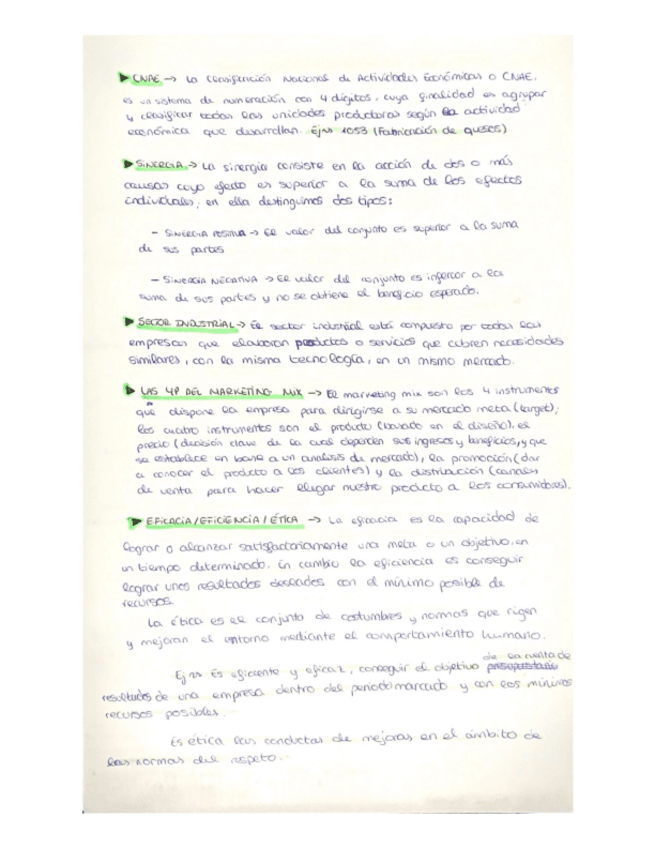 ▶ CNAE → La Clasificación Nacional de Actividades Económicas o CNAE,
es un sistema de numeración con 4 dígitos, cuya finalidad es agrupar
y clasificar todas las unidades productoras según la actividad
económica que desarrollan. Ej => 1053 (Fabricación de quesos)
▶ SINERGIA → La sinergia consiste en la acción de dos o más
causas cuyo efecto es superior a la suma de los efectos
individuales, en ella distinguimos dos tipos:
- SINERGIA POSITIVA → El valor del conjunto es superior a la suma
de sus partes
- SINERGIA NEGATIVA → El valor del conjunto es inferior a la
suma de sus partes y no se obtiene el beneficio esperado.
▶ SECTOR INDUSTRIAL → El sector industrial está compuesto por todas las
empresas que elaboran productos o servicios que cubren necesidades
similares, con la misma tecnología, en un mismo mercado.
▶ LAS 4P DEL MARKETING MIX → El marketing mix son los 4 instrumentos
que dispone la empresa para dirigirse a su mercado meta (target);
los cuatro instrumentos son el producto (basado en el diseño), el
precio (decisión clave de la cual dependen sus ingresos y beneficios, y que
se establece en base a un analisis de mercado), la promoción (dar
a conocer el producto a los clientes) y la distribución (canales
de venta para hacer llegar nuestro producto a los consumidores).
▶ EFICACIA/EFICIENCIA/ÉTICA → La eficacia es la capacidad de
lograr o alcanzar satisfactoriamente una meta o un objetivo, en
un tiempo determinado. En cambio la eficiencia es conseguir
lograr unos resultados deseados con el mínimo posible de
recursos.
La ética es el conjunto de costumbres y normas que rigen
y mejoran el entorno mediante el comportamiento humano.
de la cuenta de
Ej => Es eficiente y eficaz, conseguir el objetivo presupuestario
resultados de una empresa dentro del periodo marcado y con los mínimos
recursos posibles.
Es ética las conductas de mejoras en el ámbito de
las normas del respeto.